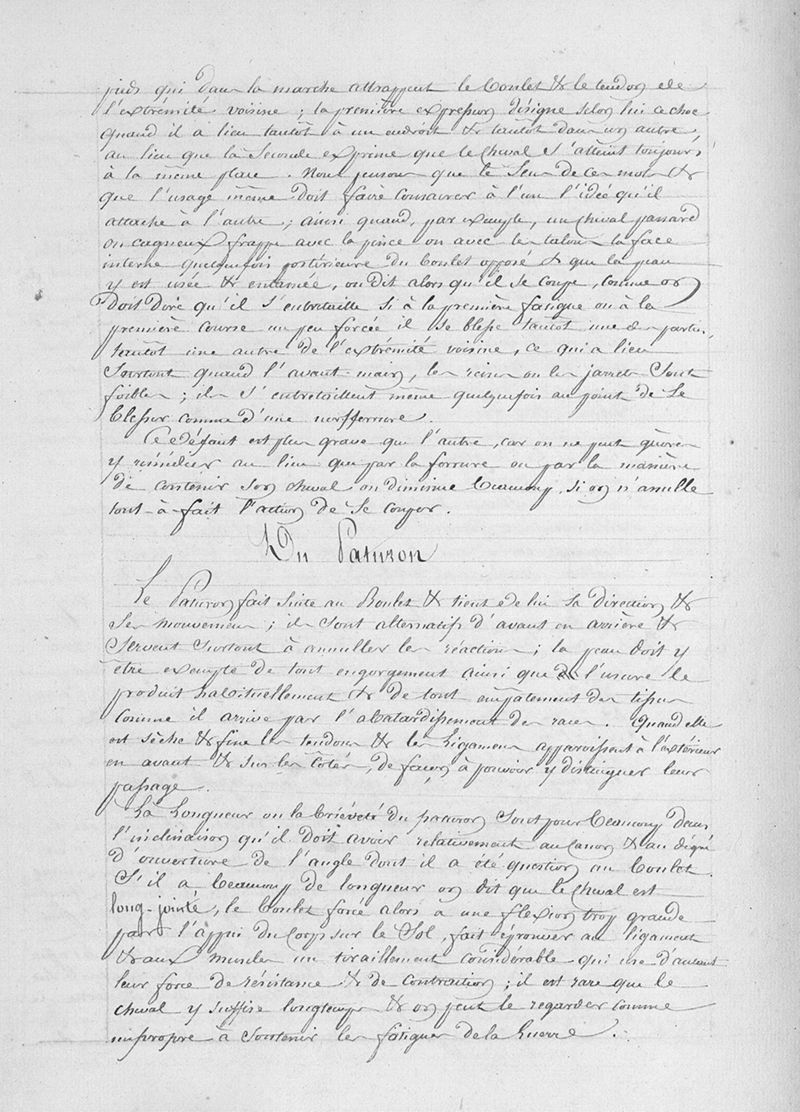 pieds qui dans la marche attrappent le boulet & le tendon de
l'extrémité voisine ; la première expression désigne selon lui ce choc
quand il a lieu tantôt à un endroit & tantôt dans un autre,
au lieu que la seconde exprime que le cheval s'atteint toujours
à la même place. Nous pensons que le sens de ces mots &
que l'usage même doit faire conserver à l'un l'idée qu'il
attache à l'autre ; ainsi quand, par exemple, un cheval panard
ou cagneux frappe avec la pince ou avec les talons la face
interne quelquefois postérieure du boulet opposé & que la peau
y est usée & entamée, on dit alors qu'il se coupe, comme on
doit dire qu'il s'entretaille si à la première fatigue ou à la
première course un peu forcée il se blesse tantôt une des parties
tantôt une autre de l'extrémité voisine, ce qui a lieu
surtout quand l'avant-main, les reins ou les jarrets sont
foibles ; ils s'entretaillent même quelquefois au point de se
blesser comme d'une nerfferrure.
Ce défaut est plus grave que l'autre, car on ne peut guères
y remédier au lieu que par la ferrure ou par la manière
de contenir son cheval on diminue beaucoup, si on n'annulle
tout-à-fait l'action de se couper.
Du Paturon
Le Paturon fait suite au Boulet & tient de lui sa direction &
ses mouvemens ; ils sont alternatifs d'avant en arrière &
servent surtout à annuller les réactions ; la peau doit y
être exempte de tout engorgement ainsi que l'usure le
produit habituellement & de tout empâtement des tissus
comme il arrive par l'abatardissement des races. Quand elle
est sèche & fine les tendons & les Ligamens apparoissent à l'extérieur
en avant & sur les côtés, de façon à pouvoir y distinguer leur
passage.
La Longueur ou la briéveté du paturon sont pour beaucoup dans
l'inclinaison qu'il doit avoir relativement au canon & au dégré
d'ouverture de l'angle dont il a été question au boulet.
S'il a beaucoup de longueur on dit que le cheval est
long-jointé, le boulet forcé alors à une flexion trop grande
par l'appui du corps sur le sol, fait éprouver au ligament
& aux muscles un tiraillement considérable qui use d'autant
leur force de résistance & de contraction ; il est rare que le
cheval y suffise longtemps & on peut le regarder comme
impropre à soutenir les fatigues de la Guerre.